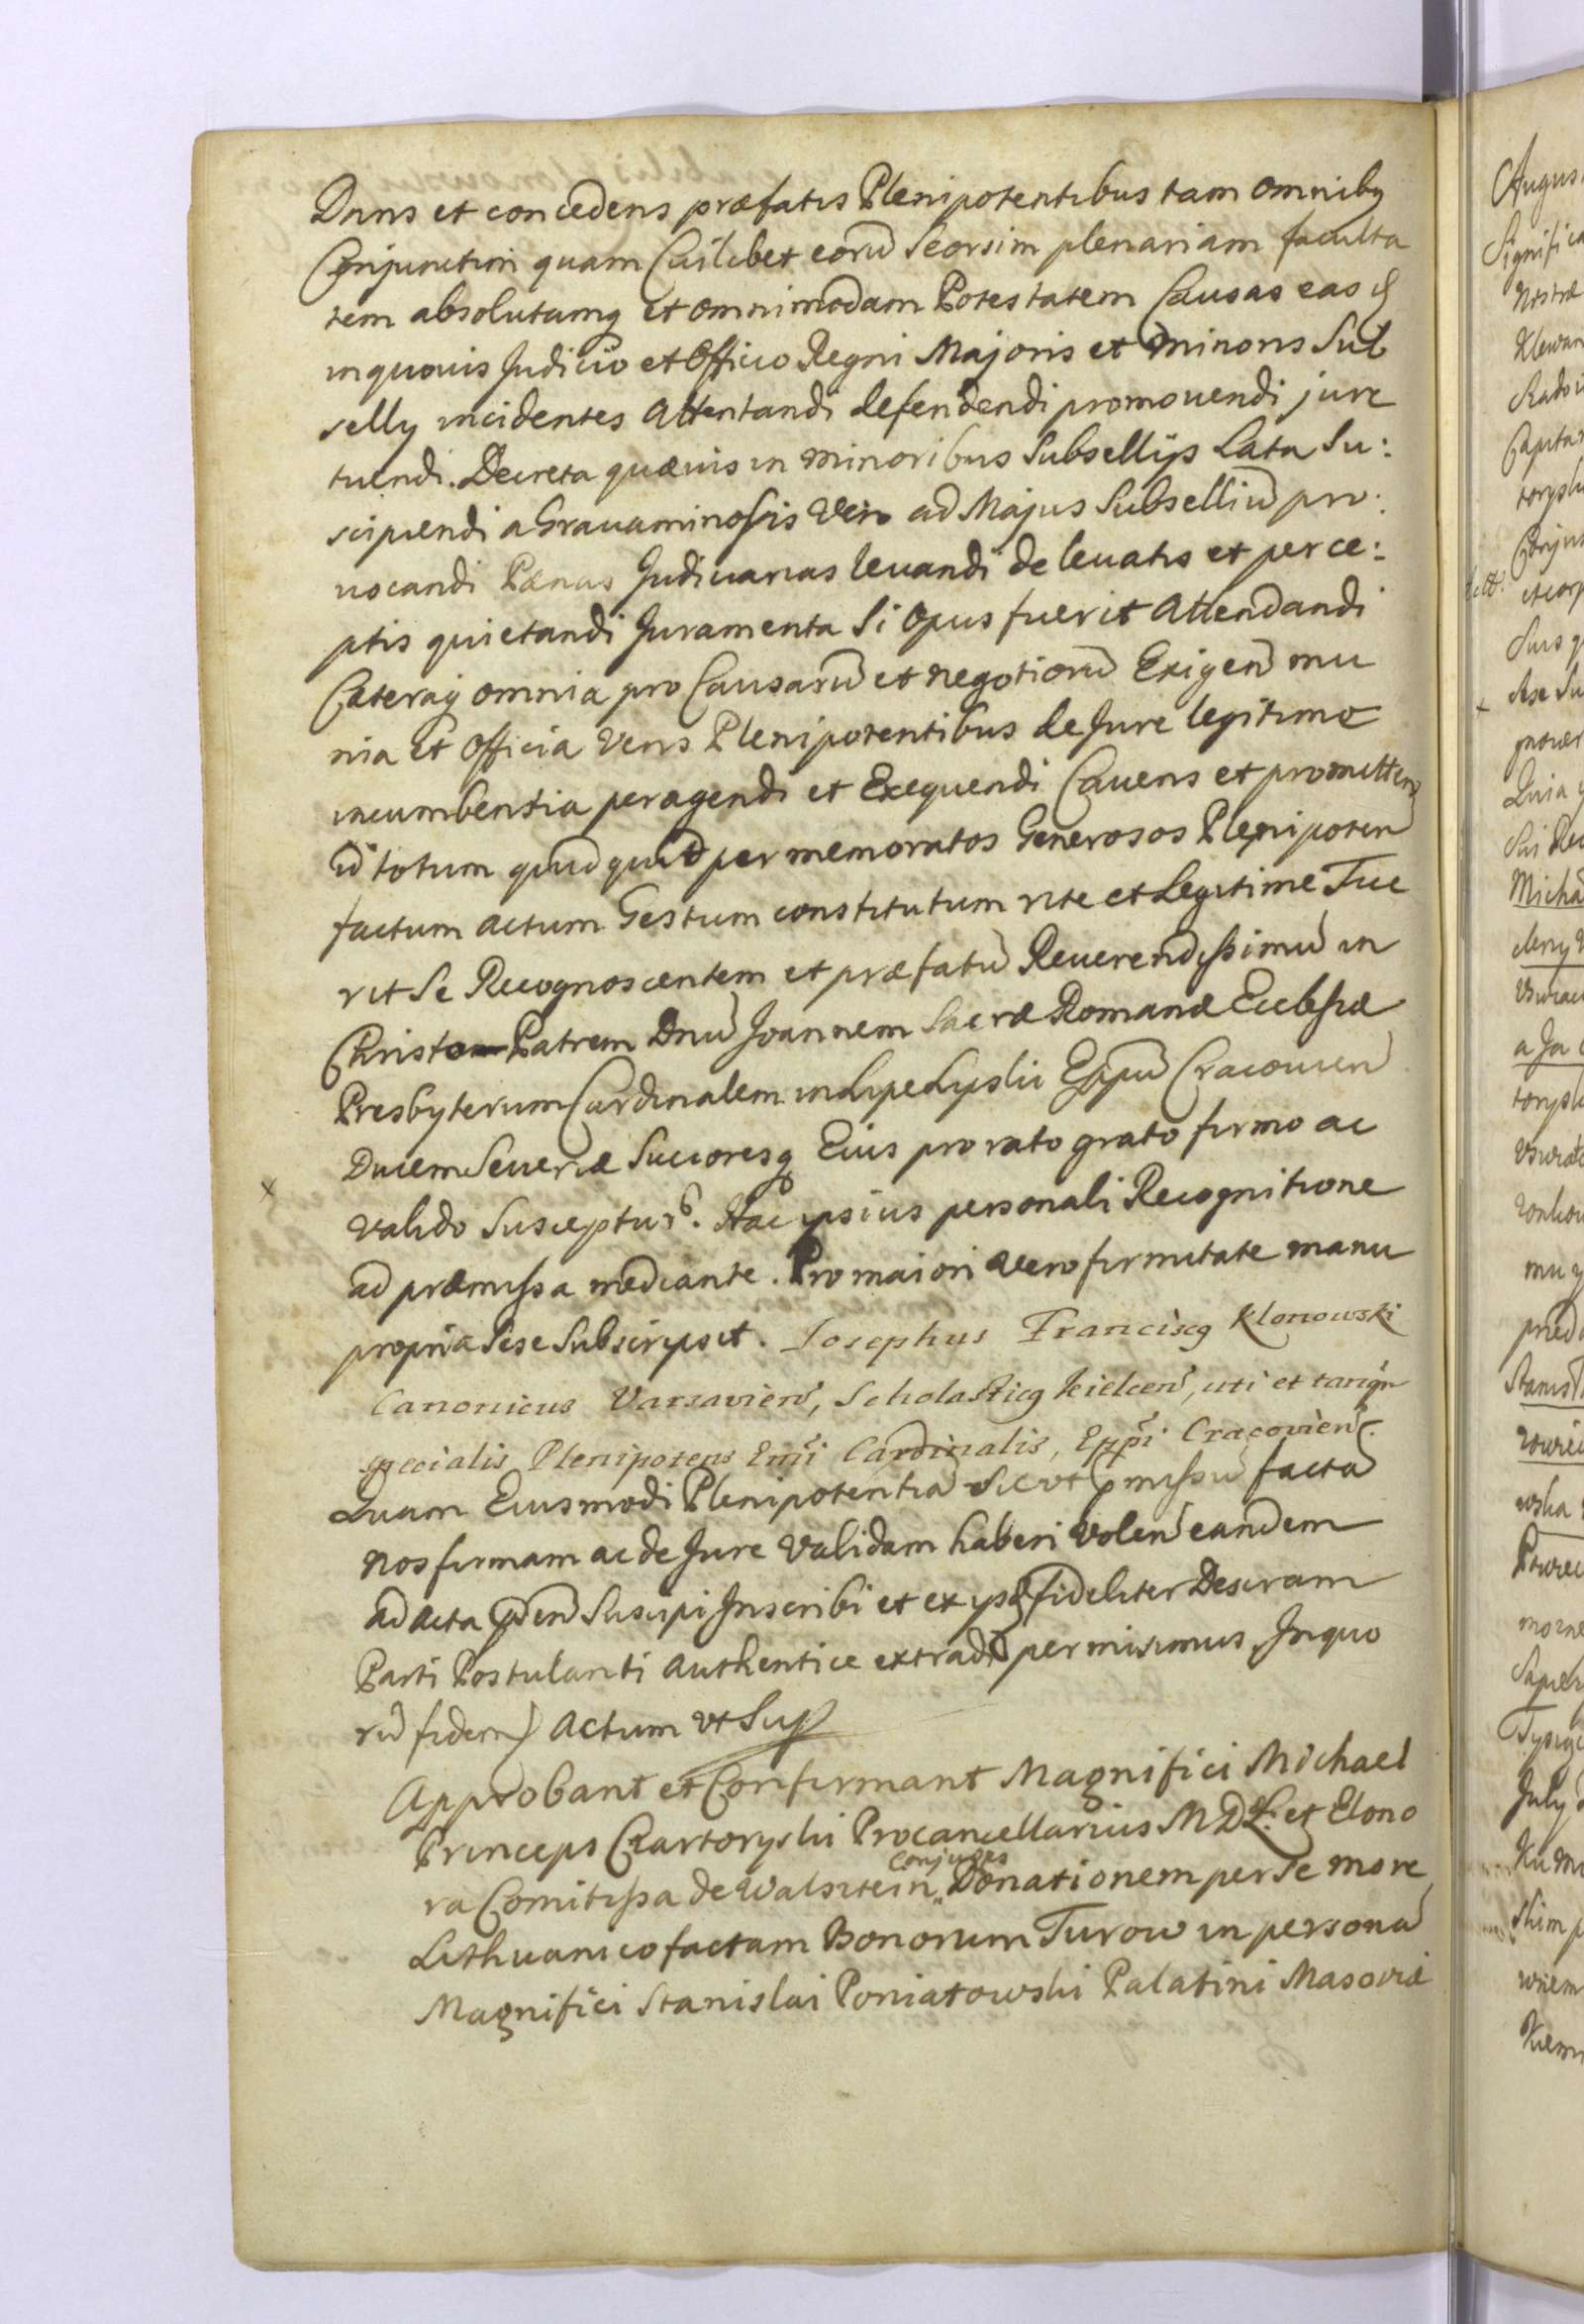 Dnns et concedens præfatis Plenipotentibus tam omniby
Conjunctim quam Cuilibet eorũ Seorsim plenariam faculta
tem absolutamq et omnimodam Potestatem Causas eas
inquovis Judicio et Officio Regni Majoris et Minoris Sub
selly incidentes Attentandi defendendi promovendi jure
tuendi. Decreta quævis in minoribus Subsellijs Lata Su:
scipiendi a Gravaminosis Vero ad Majus Subselliũ pro:
vocandi Pænas Judiciarias levandi de levatis et perce:
ptis quietandi Juramenta Si Opus fuerit Attendandi
Cæteraq omnia pro Causarũ et negotiorũ Exigen mu
nia et Officia Veris Plenipotentibus de Jure legitimo
incumbentia peragendi et Exequendi Cavens et promitten
id totum quidquid per memoratos Generosos Plenipoten
factum actum Gestum constitutum rite et Legitime Fue
rit Se Recognoscentem et præfatũ Reverendissimũ in
Christo Patrem Dnũ Joannem Sacræ Romanæ Ecclesiæ
Presbyterum Cardinalem in Lipe Lipski Eppũ Cracovien
Ducem Severiæ Succoresq Eius pro rato grato firmo ac
valido Suscepturũ. Hac ipsius personali Recognitione
ad præmissa mediante. Pro maiori vero firmitate manu
propria Sese Subscripsit. Josephus Franciscq Klonowski
Canonicus Varsavien, Scholasticq Kielcen, uti et tanqm
specialis Plenipotens Emi Cardinalis, Eppi Cracovien.
Quam Eiusmodi Plenipotentiã Sicut pmissũ factã
Nos firmam ac de Jure Validam haberi Volen eandem
ad Acta pñ Suscipi Inscribi et ex ysd fideliter Descriptam
Parti Postulanti Authentice extradi permisimus. Inquo
rũ fidem) Actum ut Sup
Approbant et Confirmant Magnifici Michael
Princeps Czartoryski Procancellarius M D L. et Elono
ra Comitissa de Walsztein conjuges Donationem per Se more
Lithuanico factam Bonorum Turow in personã
Magnifici Stanislai Poniatowski Palatini Masoviæ